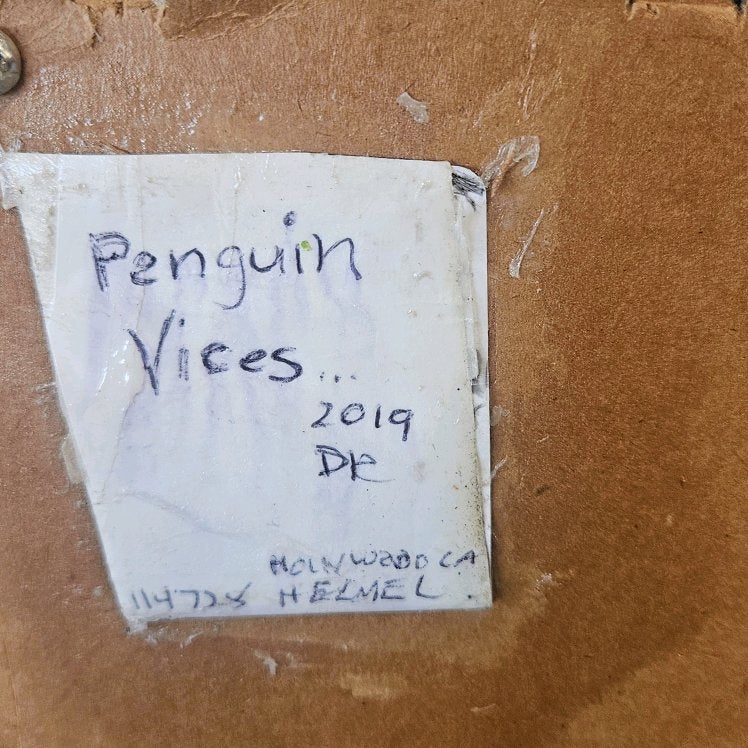 Penguin
Vices...
2019
DR
HOLLYWOOD CA
114728 HELMEL.